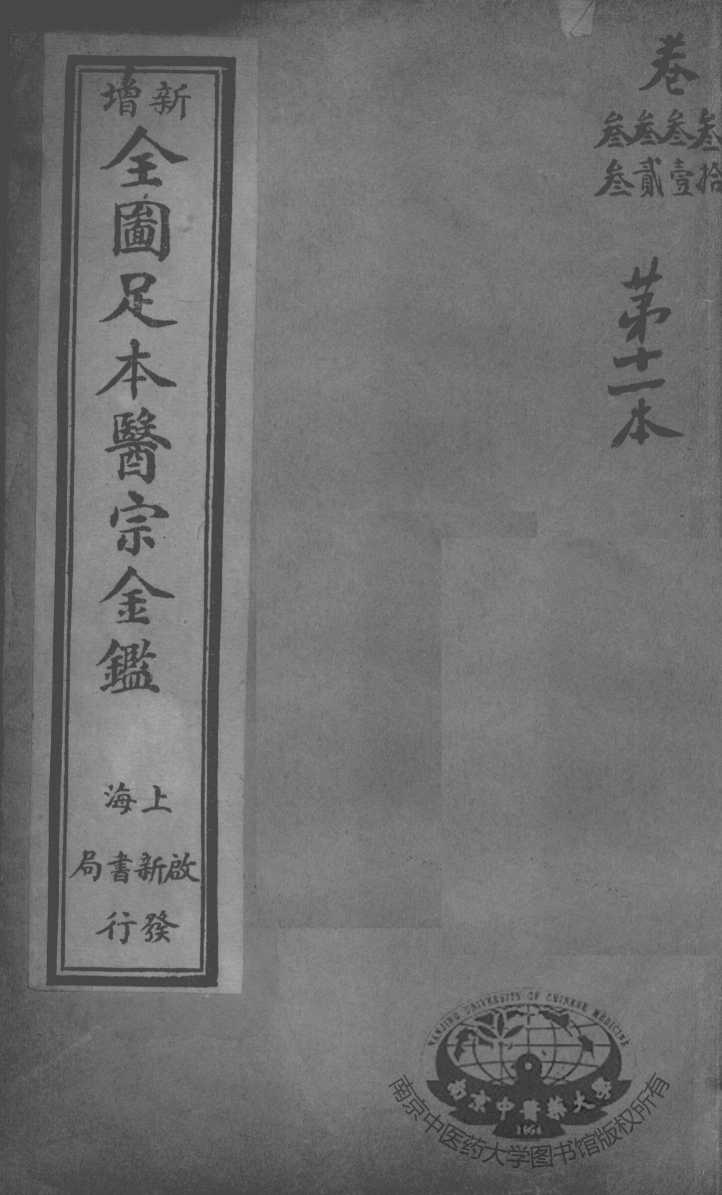 卷
叁拾
叁壹
叁貳
叁叁
苐十一本
新增
全圖足本醫宗金鑑
上海
啟新書局
發行
NANJING UNIVERSITY OF CHINESE MEDICINE
南京中醫藥大學
1954
南京中医药大学图书馆版权所有